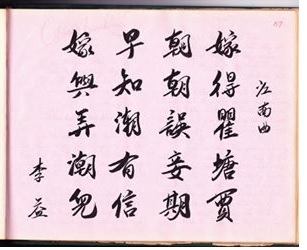 江南曲
嫁得瞿塘賈
朝朝誤妾期
早知潮有信
嫁與弄潮兒
李益